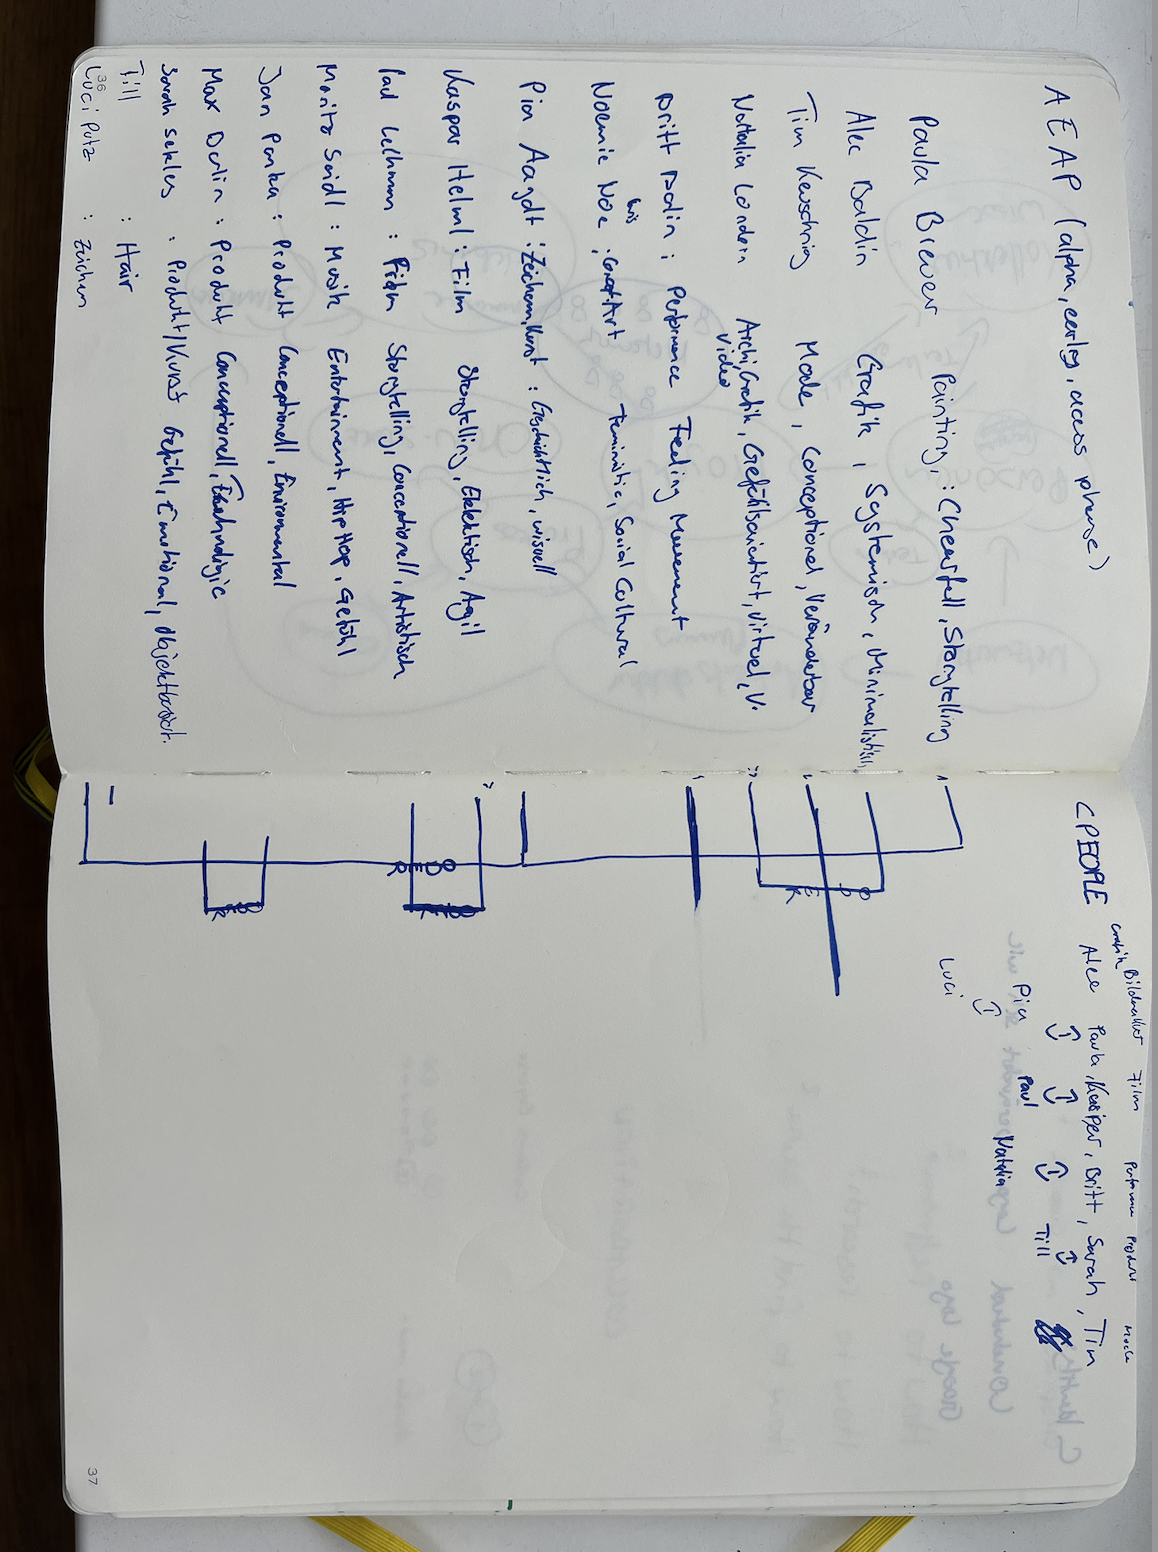 AEAP (alpha, early, access phase)
Paula Brewer Painting, : Cheerfull, Storytelling
Alec Baldin Grafik, Systemisch, Minimalistisch
Tim Kerschnig Mode, Conceptionel, Veränderbar
Natalia Londern Archi, Grafik, Gefühlsorientiert, virtuel, V.
Video
Britt Dolin : Performance Feeling Movement
Noemie Noe : Concept Art Feministic, Social Cultural
Pia Aagdt : Zeichnen, Kunst : Geschichtlich, visuell
Kaspar Helml : Film Storytelling, Eklektisch, Agil
Paul Lechmann : Film Storytelling, Conceptionell, Artistisch
Moritz Seidl : Musik Entertainment, HipHop, Gefühl
Jan Panka : Produkt Conceptionell, Enviromental
Max Derlin : Produkt Conceptionell, Technologie
Sarah Sekles : Produkt/Kunst Gefühl, Emotional, objektbasiert.
Till : Hair
Luci Putz : Zeichen
36
CPEOPLE
Grafik Bildende Kunst Film Performance Produkt Mode
Alec Paula, Kaspar, Britt, Sarah, Tim
Pia Paul Natalia Till
Luci
B
E
R
37